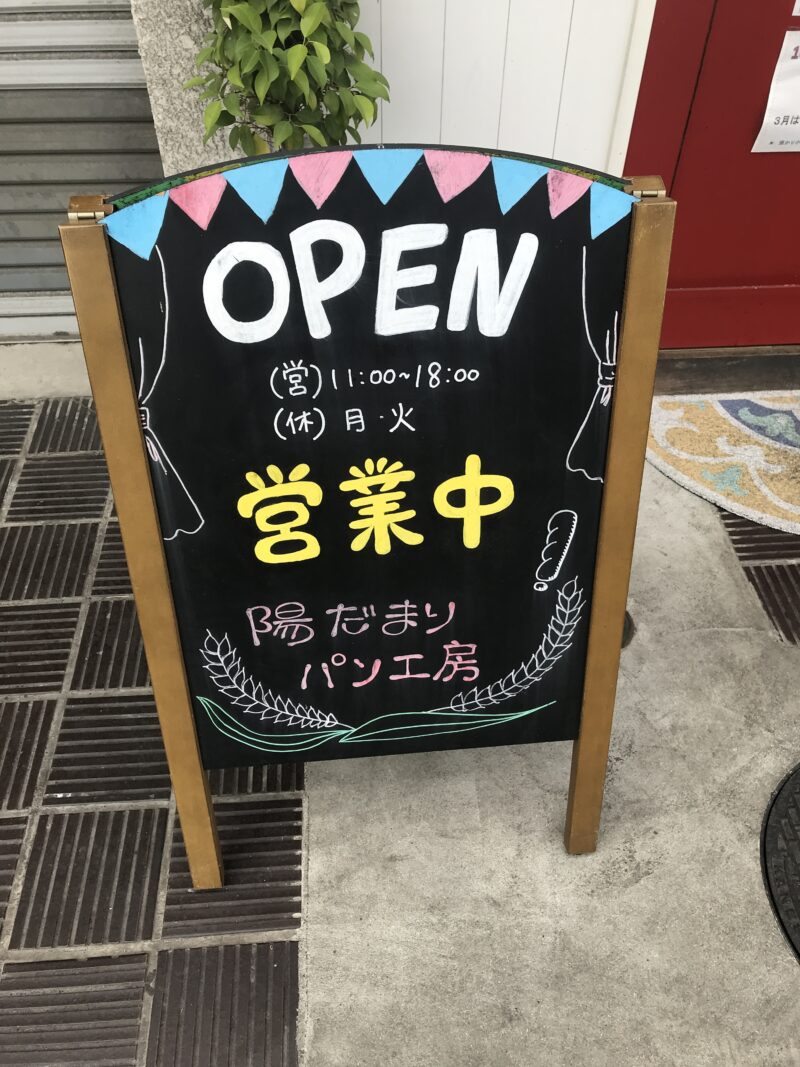 OPEN
(営) 11:00~18:00
(休) 月・火
営業中
陽だまり
パン工房
3月は